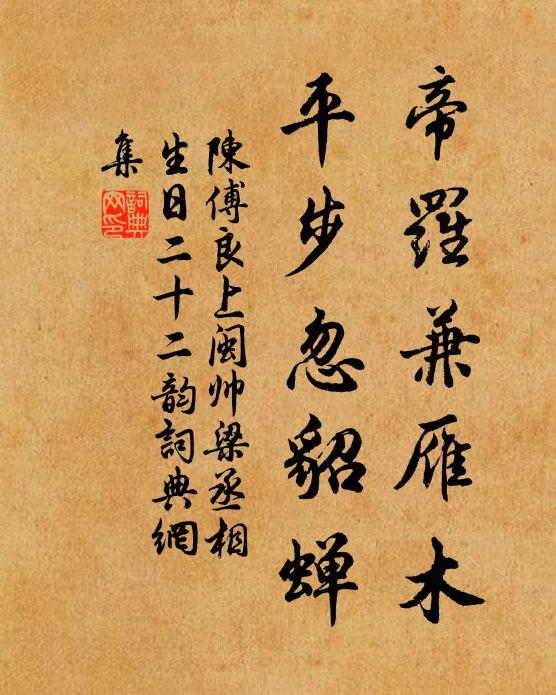 帝羅兼雁木
平步忽貂蝉
陳傅良上闽帅梁丞相
生日二十二韵詞典網
集
詞典网印